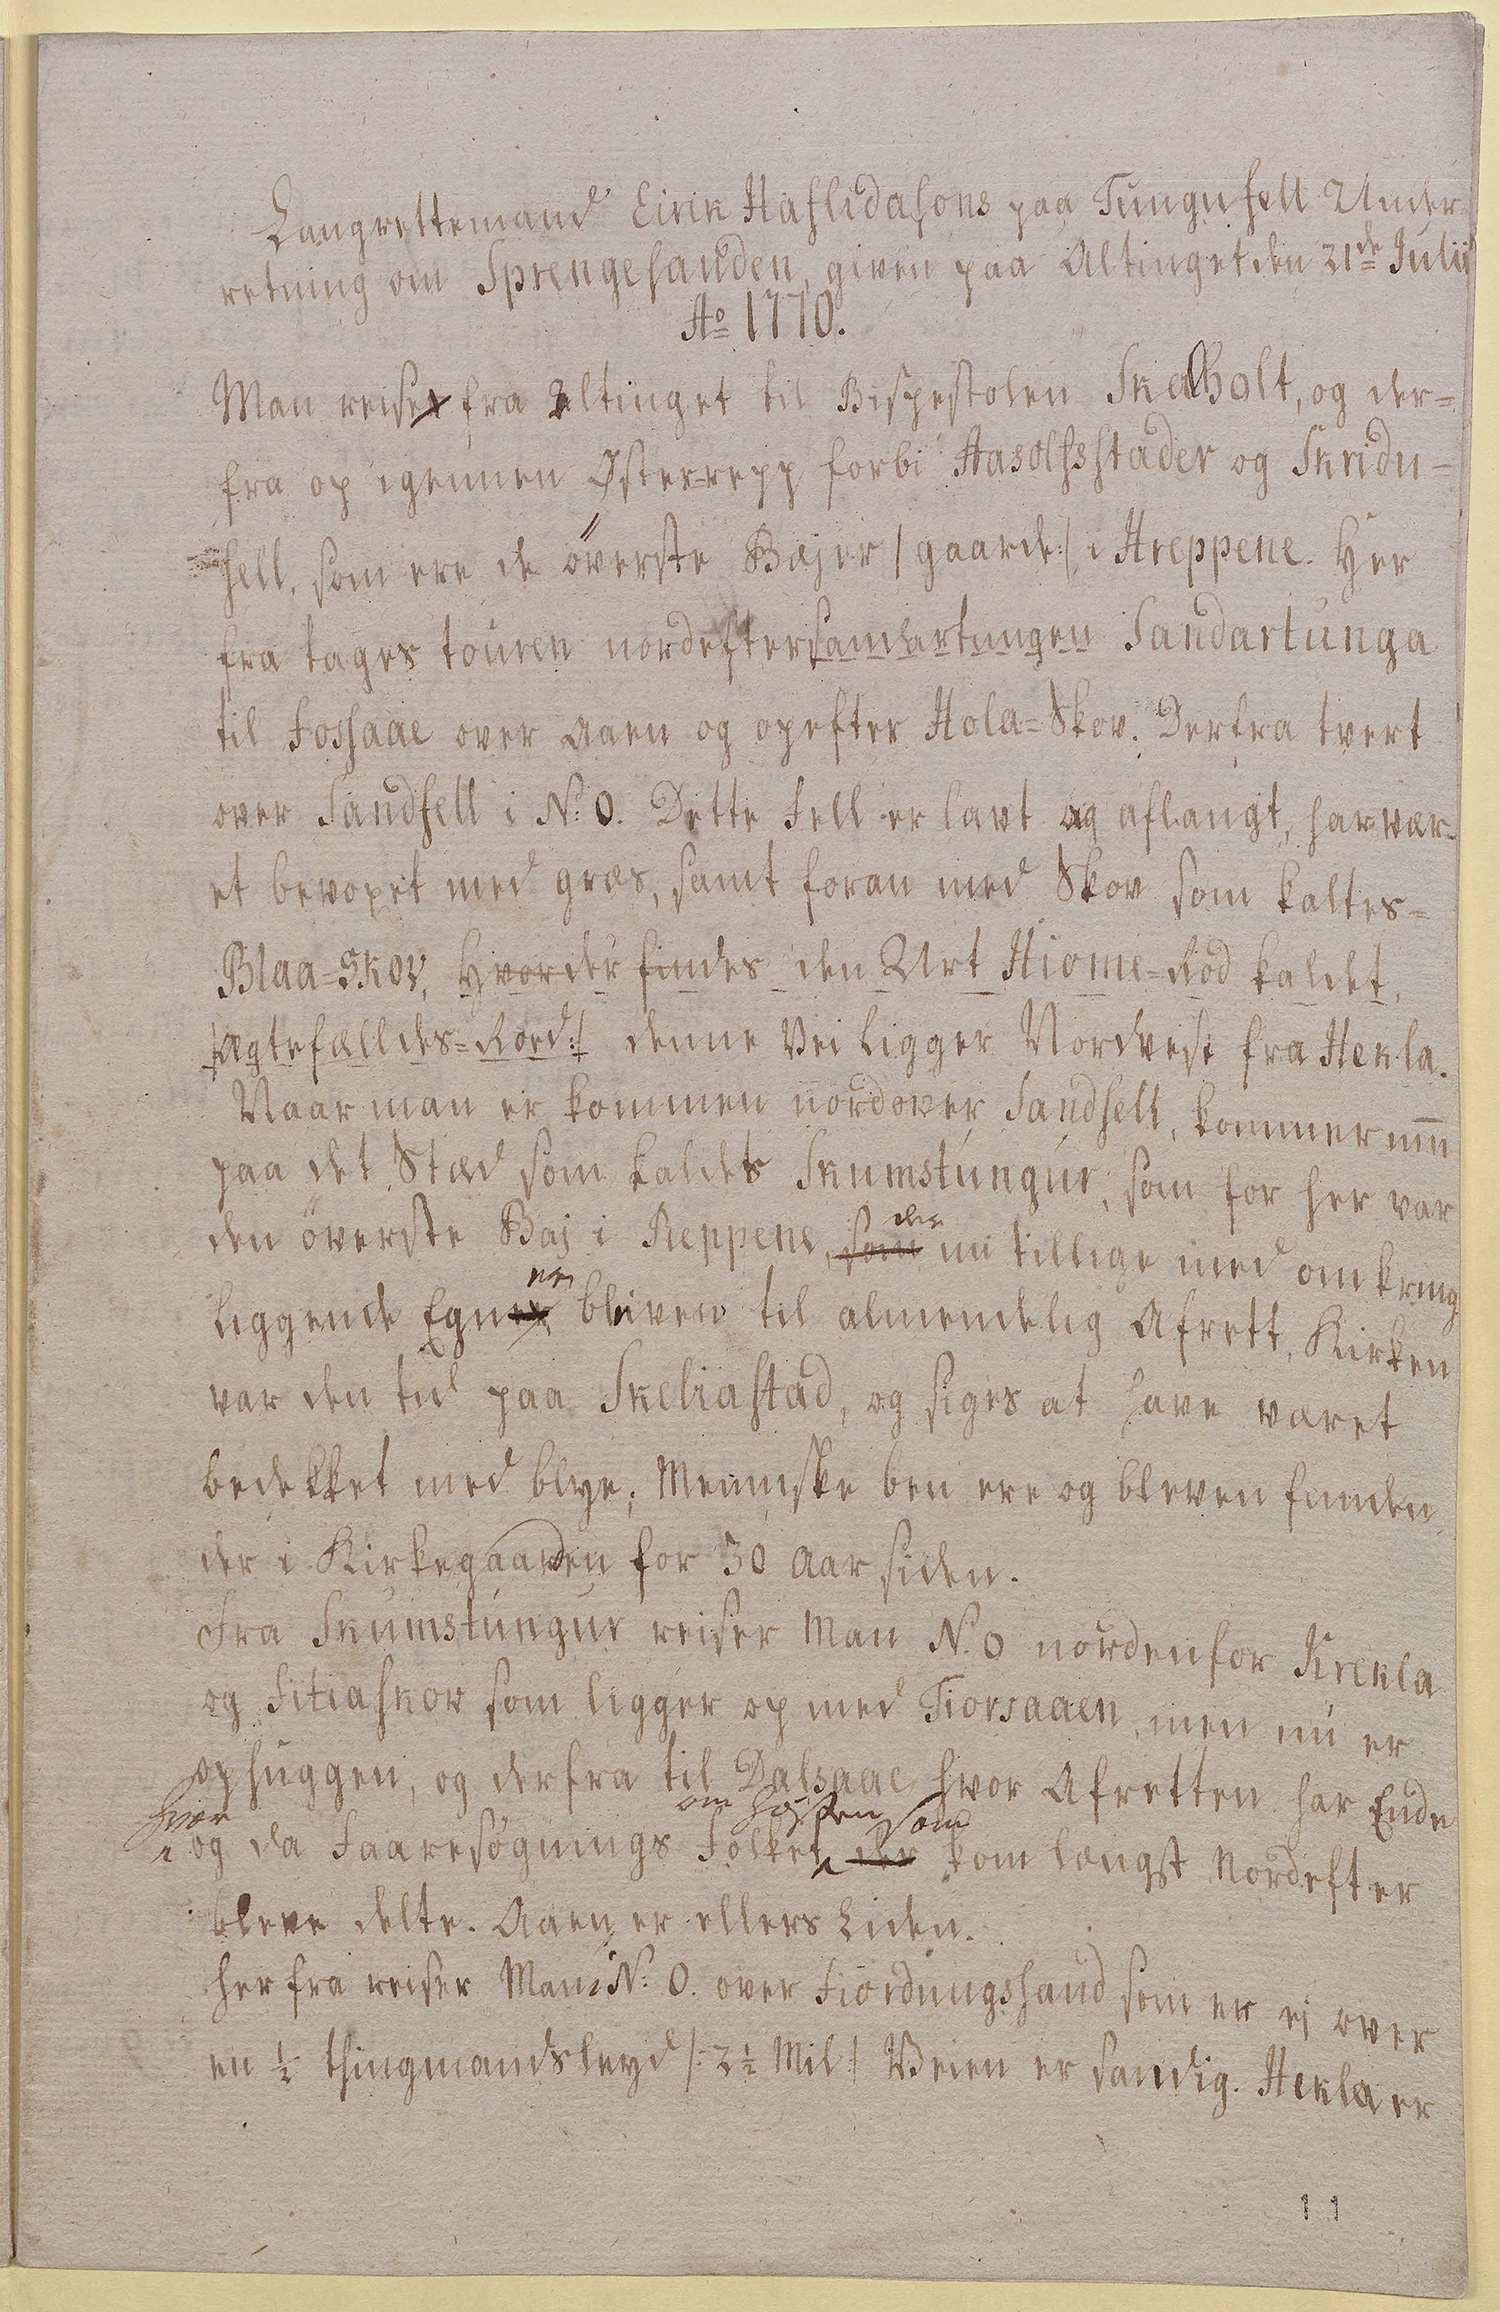 Laugrettemand Eirik Haflidasons paa Tungufell Under
retning om Sprengesanden, given paa Altinget den 21de Julii
Ao 1770.
Man reiser fra Altinget til Bispestolen Skalholt, og der=
fra op igennem Østerrepp forbi Hasolfsstader og Skridu=
fell, som ere de överste Bæjer /gaarde:/ i Hreppene. Her
fra tages touren nordefter samdartungen Sandartunga
til Fossaae over Aaen og opefter Hola=Skov. Derfra tvert
over Sandfell i N: O. Dette Fell er lavt og aflangt, har vær=
et bevoxet med græs, samt foran med Skov som kaltes=
Blaa=Skov, Hvorder findes den Urt Hione=Rod kaldet,
/Ægtefælldes=Roed:/ denne Vei Ligger Nordvest fra Hekla.
Naar man er kommen nordover Sandfell, kommer mm
paa det Stæd som kaldes Skumstungur, som for her var
den överste Baj i Reppene, som der nu tillige med omkring
liggende Egner en bliven til almendelig Afrett, Kirken
var den tid paa Skeliastad, og siges at have været
bedekket med blye; Menniske ben ere og bleven funden
der i Kirkegaarden for 30 Aar siden.
Fra Skumstungur reiser Man N. O nordenfor Krekla
og Fitiaskov som ligger op med Tiorsaaen, men nu er
ophuggen, og derfra til Dalsaae hvor Afretten har Ende
hvor om høsten som
og da Faaresøgnings Folket der kom længst Nordefter
bleve delte. Aaen er ellers Liden.
her fra reiser Man i N: O. over Fiordungssand som er ej over
en ½ thingmandsleyd /: 2½ Mil:/ Veien er sandig. Hekla er
11